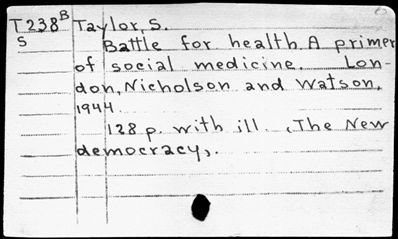 T238B Taylor, S.
S Battle for health. A primer
of social medicine. Lon-
don, Nicholson and Watson,
1944.
128 p. with ill. (The New
democracy).